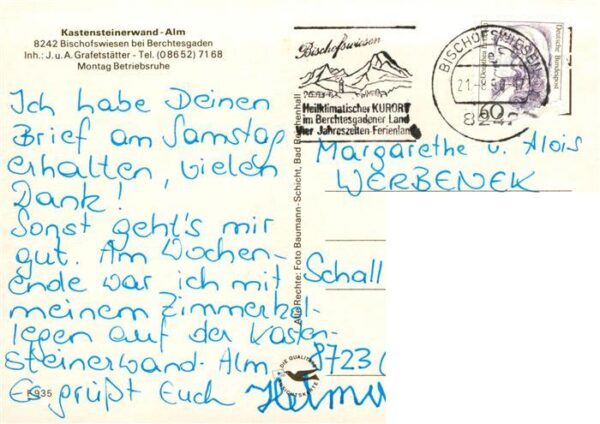 Kastensteinerwand-Alm
8242 Bischofswiesen bei Berchtesgaden
Inh.: J. u. A. Grafetstätter - Tel. (08652) 7168
Montag Betriebsruhe
Ich habe Deinen
Brief am Samstag
erhalten, vielen
Dank!
Sonst geht's mir
gut. Am Wochen-
ende war ich mit
meinem Zimmerkol-
legen auf der Kasten-
steinerwand-Alm.
Es grüßt Euch Helmu
K 935
Alle Rechte: Foto Baumann-Schicht, Bad Reichenhall
DIE QUALITÄTS
ANSICHTSKARTE
Bischofswiesen
Heilklimatischer KURORT
im Berchtesgadener Land
Vier Jahreszeiten-Ferienland
BISCHOFSWIESEN
21.
8242
60
Deutsche Bundespost
Margarethe u. Alois
WERBENEK
Schall
8723